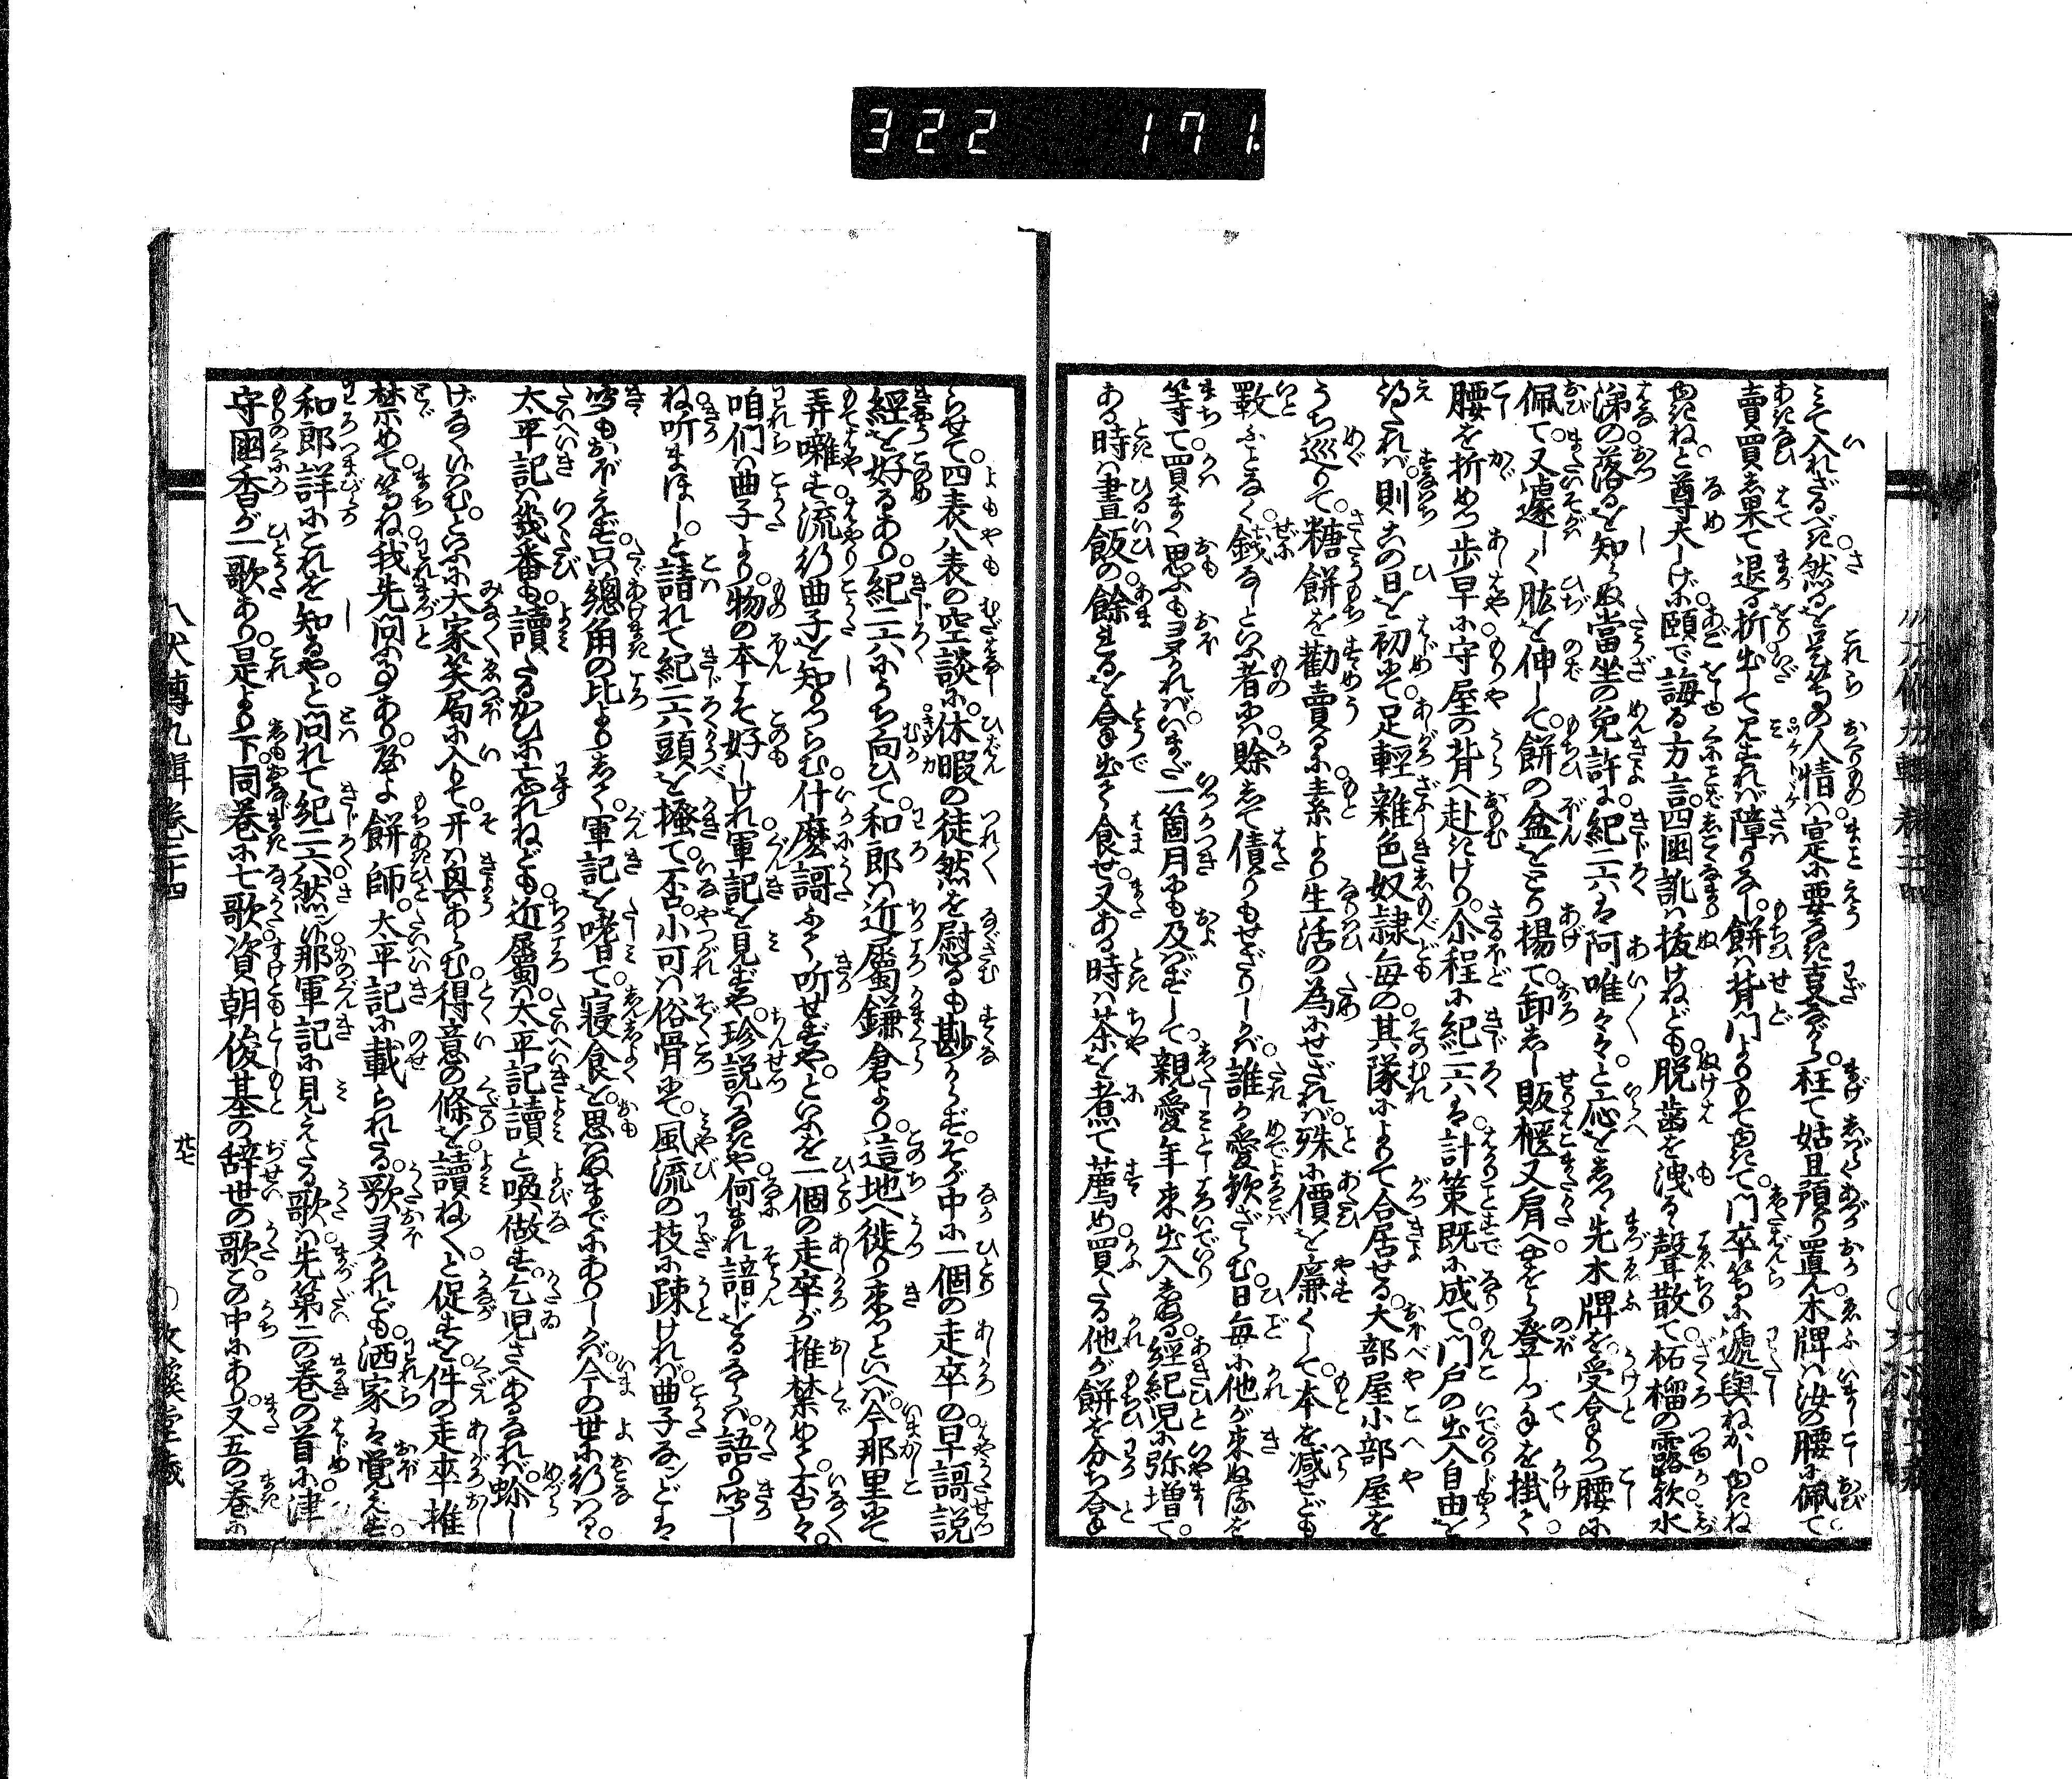 322 171
えて入れざるべき。然るを是等の人情は寔に要なき事ながら。枉て姑且預り置ん。木牌は汝の腰に佩て。
賣買し果て退る折。出して見すれば障りなし。餅は背門よりもて由きて。門卒等に遞與ねかし。由きね
由きねと尊大しげに。頤で誨る方言。四國訛は抜けねども。脱歯を洩るゝ聲散て。柘榴の露歟水
涕の落るを知らぬ當坐の免許に。紀二六は阿唯々々と應をしつゝ。先木牌を受合りつ腰に
佩て。又遽しく肱を伸して。餅の盆をとり揚て。卸しし販櫃又肩へ登しつ手を掛て。
腰を折めつ歩早に。守屋の背へ赴きけり。尒程に紀二六は。計策既に成て。門戸の出入自由を
得たれば。則この日を初にて。足輕雜色奴隷毎の。其隊によりて合居せる。大部屋小部屋を
うち巡りて。糖餅を勸賣るに。素より生活の為にせざれば。殊に價を廉くして。本を減せども
數ふことなく。錢なしといふ者には。賒して債りもせざりしかば。誰か愛歓ざらむ。日毎に他が来ぬるを
等て。買まく思ふも多かれば。いまだ一箇月にも及ばずして。親愛年来出入ある。經紀児に弥増て。
ある時は晝飯の餘れるを拿出て食せ。又ある時は茶を煮て薦め。買たる他が餅を分ち拿
らせて。四表八表の空談に。休暇の徒然を慰るも尠からず。そが中に一個の走卒の。早謌説
經を好るあり。紀二六にうち向ひて。和郎は近屬鎌倉より。這地へ徙り来つといへば。今那里にて
弄囃す。流行曲子を知りつらむ。什麼謌ふて聽せずや。といふを一個の走卒が推禁めて。否々。
咱們は曲子より。物の本こそ好しけれ。軍記を見ずや。珍説はなきや。何まれ諳じをるならば。語り聽し
ね。聽まほし。と請れて紀二六頭を掻て。否。小可は俗骨にて。風流の技に疎ければ。曲子などは
聽もおぼえず。只總角の比よりして。軍記を嗜て。寝食を思はぬまでにありしかば。今の世に行はるゝ。
太平記は幾番も讀たるかひに忘れねども。近屬は。太平記讀と喚做す。乞児さへあるなれば。珍し
げなくいはむ。といふに大家笑局に入りて。そは興あらむ。得意の條を讀ねかし。と促すを件の走卒推
禁めて。等ね。我先問ふ事あり。餅師。太平記に載られたる。歌多かれども。洒家は覚えず。
和郎詳にこれを知るや。と問れて紀二六。然ン候。那軍記に見えたる歌は。先第二の巻の首に。津
守國香が一歌あり。是より下。同巻に七歌。資朝俊基の辞世の歌。この中にあり。又五の巻に
八犬傳九輯巻三十四
廿七
文溪堂藏